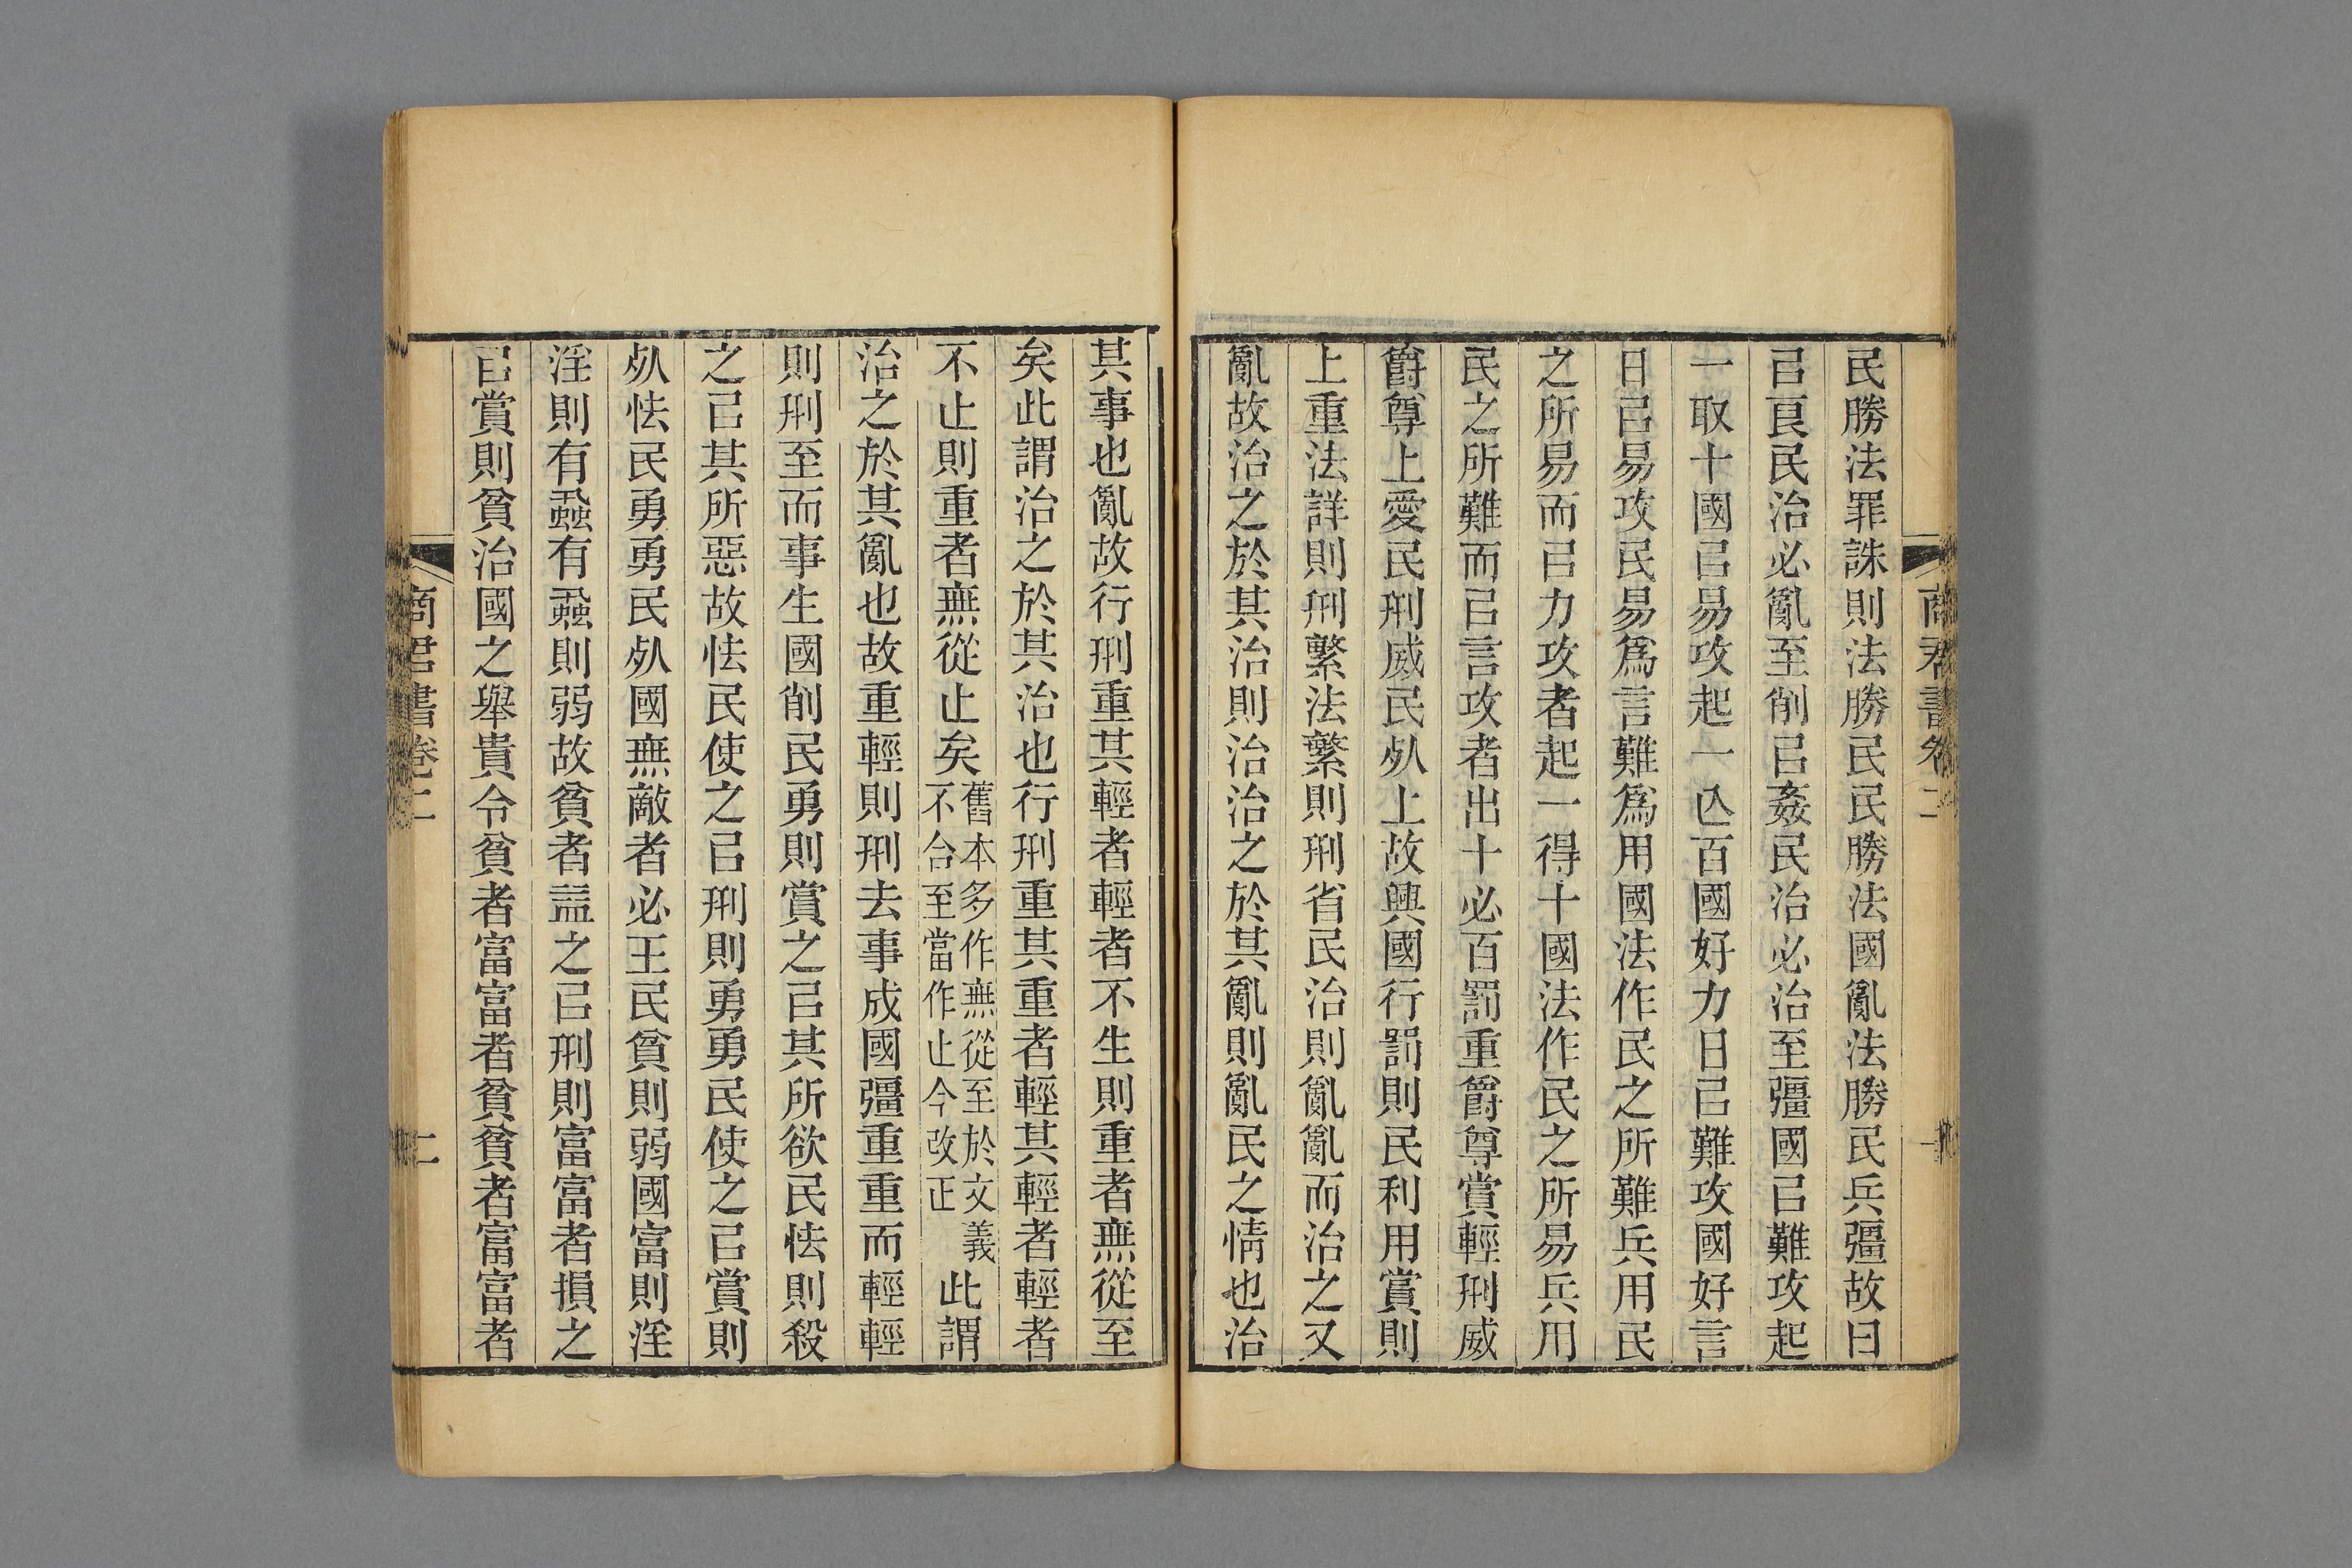 商君書卷二
民勝法罪誅則法勝民民勝法國亂法勝民兵彊故曰
㠯良民治必亂至削㠯姦民治必治至彊國㠯難攻起
一取十國㠯易攻起一亾百國好力日㠯難攻國好言
日㠯易攻民易爲言難爲用國法作民之所難兵用民
之所易而㠯力攻者起一得十國法作民之所易兵用
民之所難而㠯言攻者出十必百罰重爵尊賞輕刑威
爵尊上愛民刑威民㱾上故興國行罰則民利用賞則
上重法詳則刑繁法繁則刑省民治則亂亂而治之又
亂故治之於其治則治治之於其亂則亂民之情也治
其事也亂故行刑重其輕者輕者不生則重者無從至
矣此謂治之於其治也行刑重其重者輕其輕者輕者
不止則重者無從止矣
舊本多作無從至於文義
不合至當作止今改正
此謂
治之於其亂也故重輕則刑去事成國彊重重而輕輕
則刑至而事生國削民勇則賞之㠯其所欲民怯則殺
之㠯其所惡故怯民使之㠯刑則勇勇民使之㠯賞則
㱾怯民勇勇民㱾國無敵者必王民貧則弱國富則淫
淫則有蝨有蝨則弱故貧者益之㠯刑則富富者損之
㠯賞則貧治國之舉貴令貧者富富者貧貧者富富者
商君書卷二
二